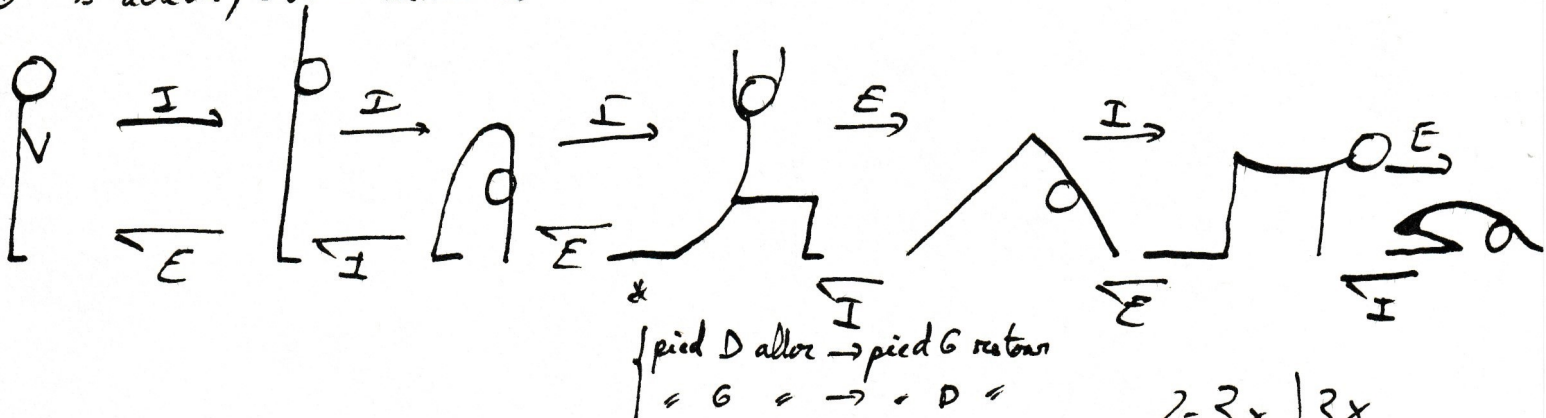 I I I E I E
E I E I E I
*
pied D aller → pied G retour
" G " → " D "
2-3x | 3x